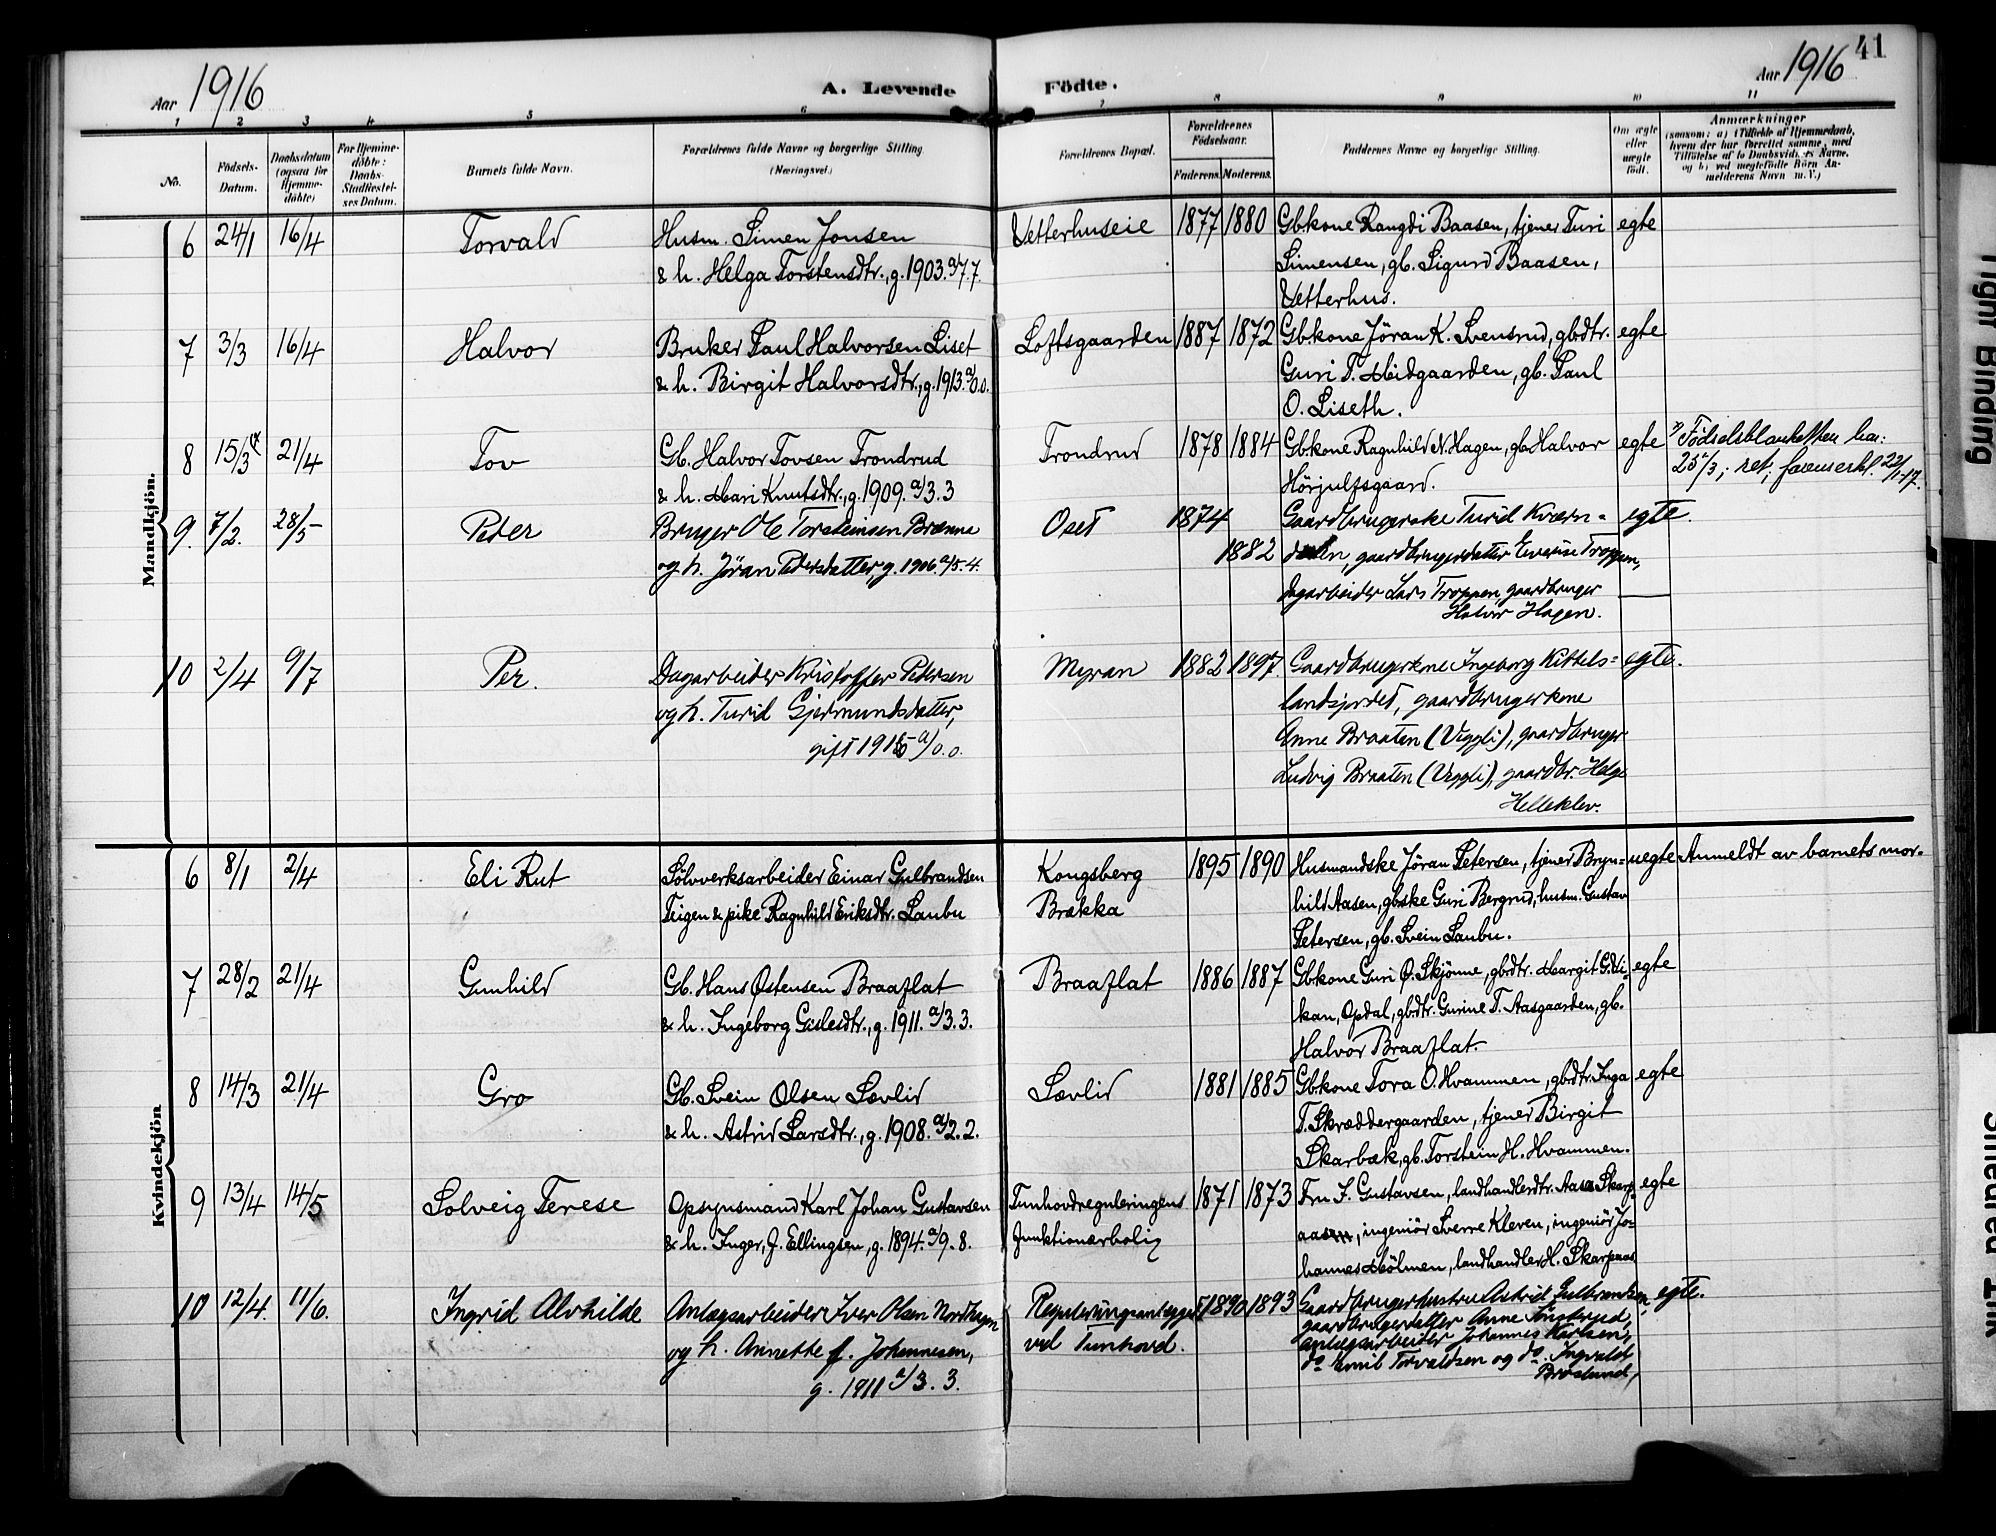 Aar 1916
A. Levende Födte.
Aar 1916 41
1 2 3 4 5 6 7 8 9 10 11
No.
Födsels-
Datum.
Daabsdatum
(ogsaa for
Hjemme-
döbte)
For Hjemme-
döbte:
Daabs-
Stadfæstel-
ses Datum.
Barnets fulde Navn.
Forældrenes fulde Navne og borgerlige Stilling
(Næringsvei.)
Forældrenes Bopæl.
Forældrenes
Födselsaar.
Faderens. Moderens.
Faddernes Navne og borgerlige Stilling.
Om ægte
eller
uægte
födt.
Anmærkninger
(saasom: a) i Tilfælde af Hjemmedaab,
hvem der har forrettet samme, med
Tilföielse af to Daabsvidners Navne,
og b) ved uægtefödte Börn An-
melderens Navn m. V.)
Mandkjön.
6 24/1 16/4 Torvald Husm. Simen Jonsen Vetterhuseie 1877 1880 Gbkone Rangdi Baasen, tjener Turi egte
& h. Helga Torstensdtr., g. 1903. a/7.7. Simensen, gb. Sigurd Baasen,
Vetterhus.
7 3/3 16/4 Halvor Bruker Paul Halvorsen Liset Loftsgaarden 1887 1872 Gbkone Jöran K. Svensrud, gbdtr. egte
& h. Birgit Halvorsdtr., g. 1913. a/0.0. Guri T. Midgaarden, gb. Paul
O. Liseth.
8 15/3 21/4 Tov Gb. Halvor Tovsen Trondrud Trondrud 1878 1884 Gbkone Ragnhild N. Hagen, gb. Halvor egte Födselsblanketten har:
& h. Mari Knutsdtr., g. 1909. a/3.3 Hörjulfsgaard. 25/3; ret;
9. 7/2. 28/5 Peter Bruger Ole Torsteinsen Brænna Oset 1874 Gaardbrugerske Turid Kværn- egte.
og h. Jöran Pedersdatter g. 1906 a/5.4. 1882 dalen, gaardbrugerdatter Troppen,
dagarbeider Lars Troppen, gaardbruger
Halvor Hagen.
10 2/4 9/7 Per. Dagarbeider Kristoffer Petersen Myran 1882 1897. Gaardbrugerkone Ingeborg Kittels- egte.
og h. Turid Gjermundsdatter, landsjordet, gaardbrugerkone
gift 1915 a/0.0. Anne Braaten (Veggli), gaardbruger
Ludvig Braaten (Veggli), gaardbr. Helge
Helleklev.
Kvindekjön
6 8/1 2/4 Eli Rut Sölvverksarbeider Einar Gulbrandsen Kongsberg 1895 1890 Husmandske Jöran Petersen, tjener Bryn- uegte Anmeldt av barnets mor.
Teigen & pike Ragnhild Eriksdtr. Laubu Brækka hild Aasen, gbske Guri Bergrud, husm. Gustav
Petersen, gb. Svein Laubu.
7 28/2 21/4 Gunhild Gb. Hans Østensen Braaflat Braaflat 1886 1887 Gbkone Guri O. Skjönne, gbrdtr. Margit G. Vi- egte
& h. Ingeborg Gislesdtr., g. 1911. a/3.3. kan, Opdal, gbrdtr. Gurine T. Aasgaarden, gb.
Halvor Braaflat.
8 14/3 21/4 Gro Gb. Svein Olsen Sævlid Sævlid 1881 1885 Gbkone Tora O. Hvammen, gbrdtr. Inga egte
& h. Astrid Larsdtr., g. 1908. a/2.2. T. Skræddergaarden, tjener Birgit
Skarbæk, gb. Torstein H. Hvammen.
9 13/4 14/5 Solveig Terese Opsynsmand Karl Johan Gustavsen Tunhovdreguleringens 1871 1873 Fru I. Gustavsen, landhandlerdtr. Aasa Skarp- egte
& h. Inger, f. Ellingsen, g. 1894. a/9.8. funktionærbolig aasen, ingeniör Sverre Kleven, ingeniör Jo-
hannes Mölmen, landhandler H. Skarpaas
10 12/4. 11/6. Ingrid Alvhilde Anlægsarbeider Iver Olsen Nordhagen Reguleringsanlegget 1890 1893 Gaardbrugerhustru Astrid Gulbransen, egte.
og h. Annette f. Johannesen, ved Tunhovd. gaardbrugerdatter Anne Tönderud,
g. 1911 a/3.3. anlægsarbeider Johannes Karlsen,
do Emil Torvaldsen og do. Ingvald
Broslund,
Tight Binding